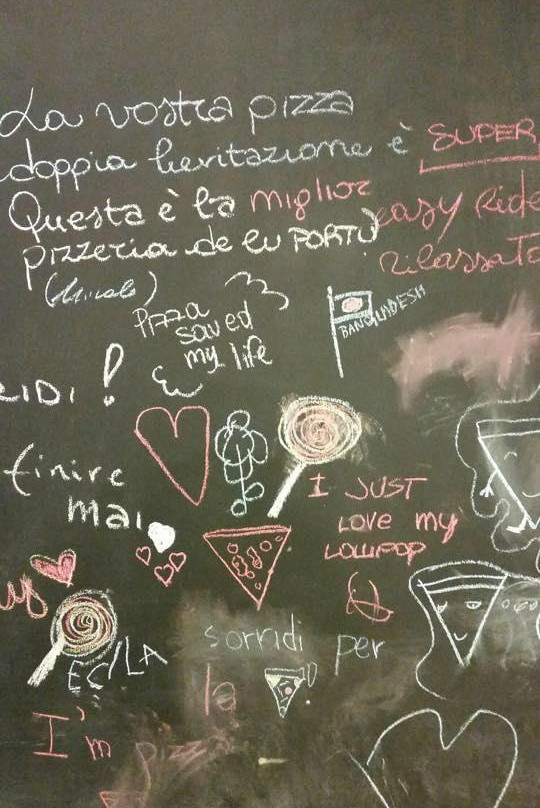 La vostra pizza
doppia lievitazione è SUPER
Questa è la miglior
easy Ride
pizzeria de lu PORTU
rilassato
Pizza
saved
my life
BANGLADESH
RIDI!
finire
mai
I JUST
LOVE My
LOLLIPOP
sorridi per
la
I'm